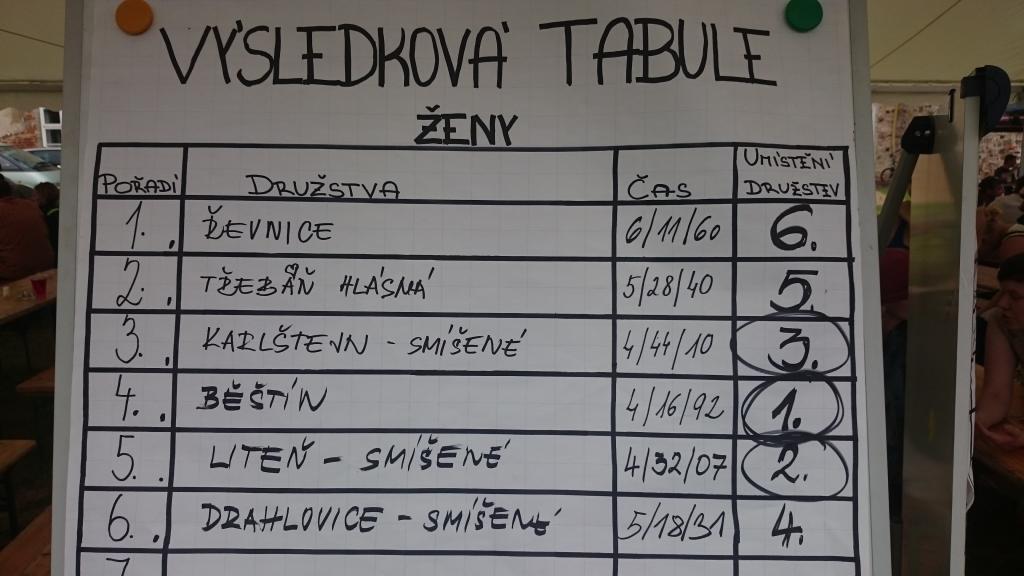 VÝSLEDKOVÁ TABULE
ŽENY
POŘADÍ DRUŽSTVA ČAS UMÍSTĚNÍ DRUŽSTEV
1. ŘEVNICE 6/11/60 6.
2. TŘEBÁŇ HLÁSNÁ 5/28/40 5.
3. KARLŠTEJN - SMÍŠENÉ 4/44/10 3.
4. BĚŠTÍN 4/16/92 1.
5. LITEŇ - SMÍŠENÉ 4/32/07 2.
6. DRAHLOVICE - SMÍŠENÉ 5/18/31 4.
7